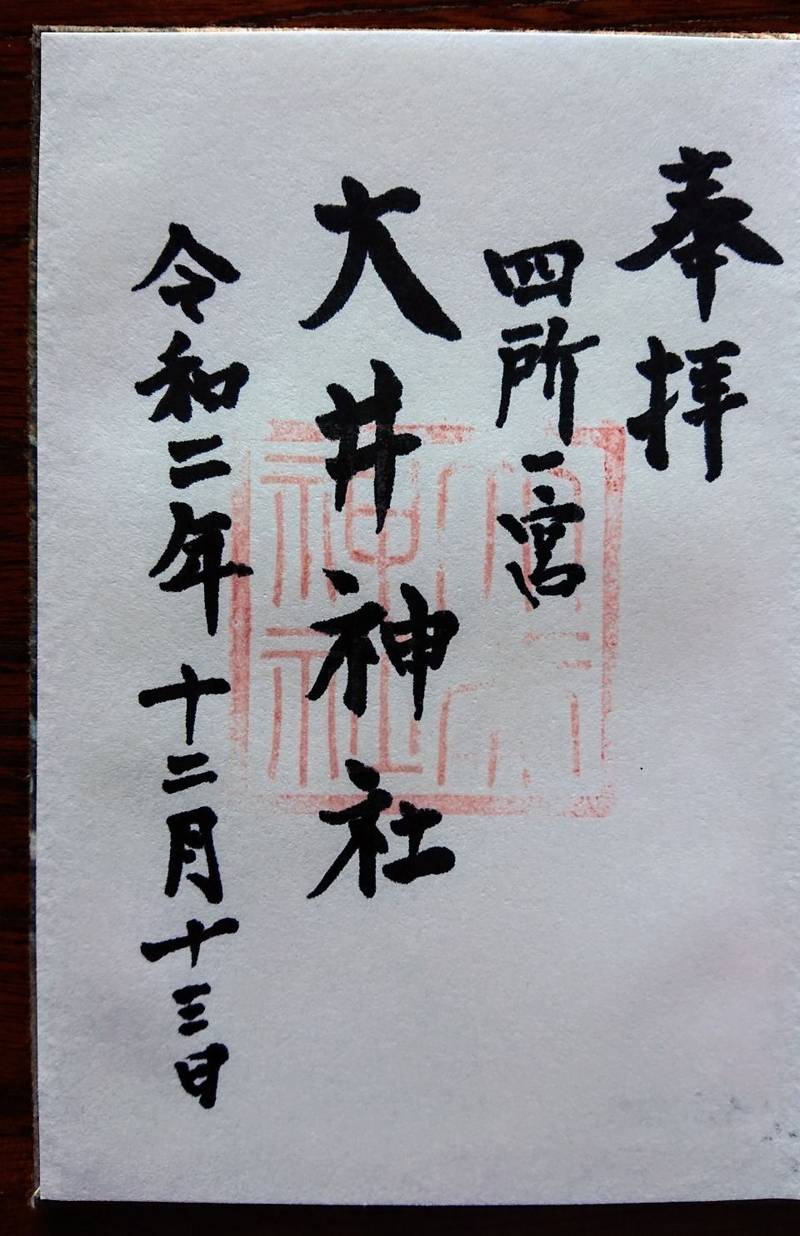 奉拝
四所宮
大井神社
令和二年十二月十三日